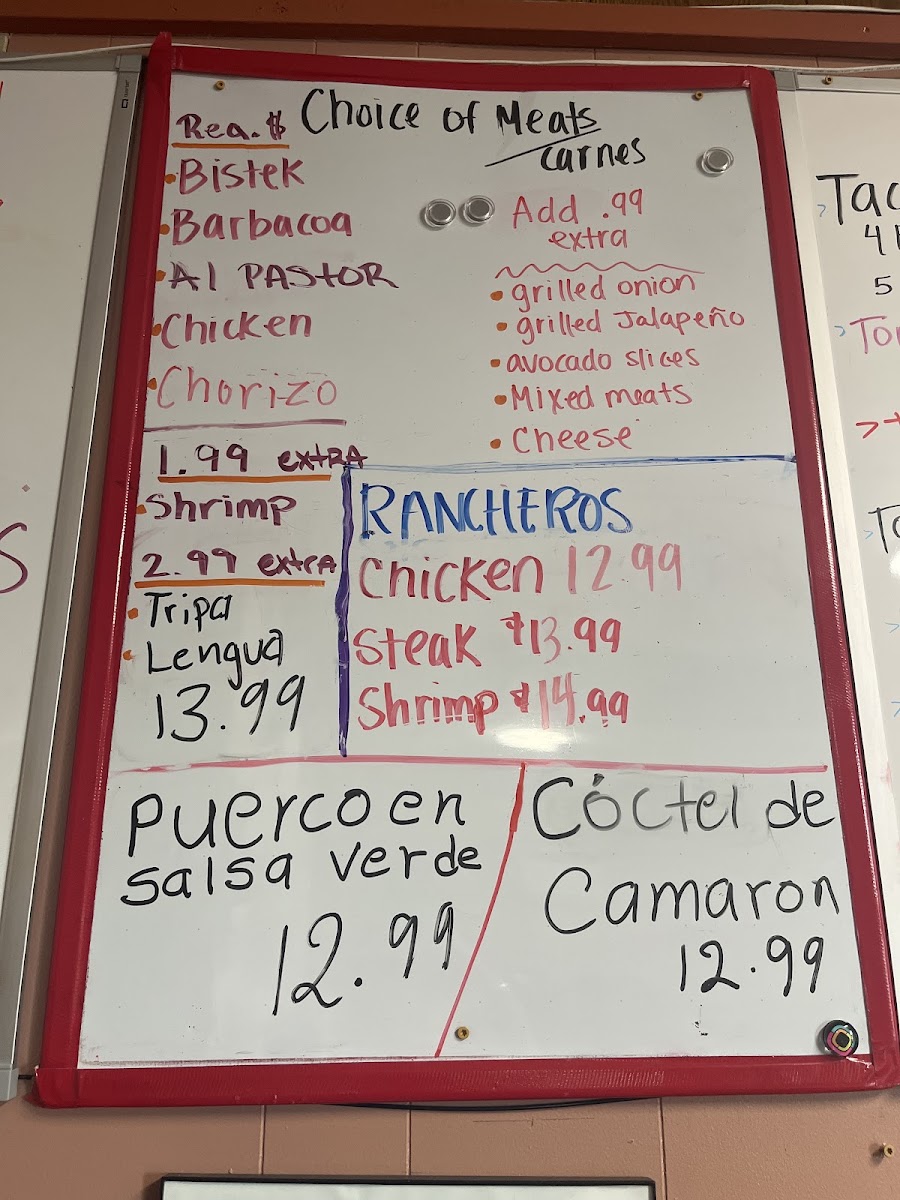 Choice of Meats
carnes
Reg. $
Bistek
Barbacoa
Al PAStOR
Chicken
Chorizo
1.99 extRA
Shrimp
2.99 extrA
Tripa
Lengua
13.99
Add .99
extra
grilled onion
grilled Jalapeño
avocado slices
Mixed meats
Cheese
RANCHEROS
Chicken 12 99
Steak $13.99
Shrimp $14.99
Puerco en
salsa verde
12.99
Cóctel de
Camaron
12.99
Tac
4
5
To
To
S